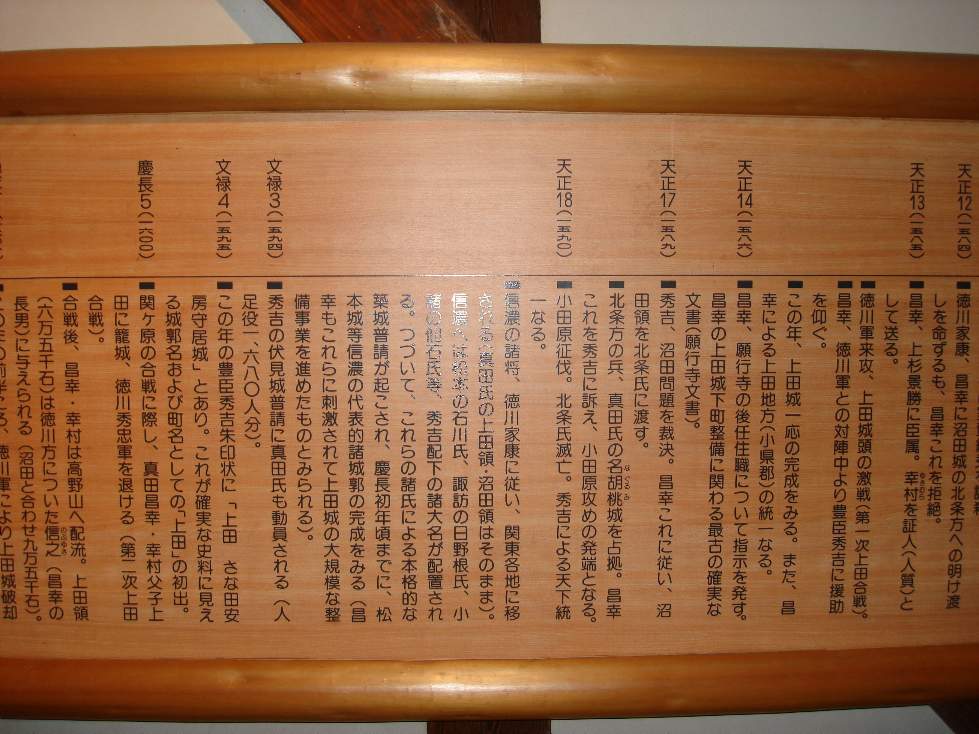 天正12(一五八四)
■徳川家康、昌幸に沼田城の北条方への明け渡
しを命ずるも、昌幸これを拒絶。
天正13(一五八五)
■昌幸、上杉景勝に臣属。幸村を証人(人質)と
して送る。
■徳川軍来攻、上田城頭の激戦(第一次上田合戦)。
■昌幸、徳川軍との対陣中より豊臣秀吉に援助
を仰ぐ。
■この年、上田城一応の完成をみる。また、昌
幸による上田地方(小県郡)の統一なる。
天正14(一五八六)
■昌幸、願行寺の後任住職について指示を発す。
昌幸の上田城下町整備に関わる最古の確実な
文書(願行寺文書)。
天正17(一五八九)
■秀吉、沼田問題を裁決。昌幸これに従い、沼
田領を北条氏に渡す。
■北条方の兵、真田氏の名胡桃城を占拠。昌幸
これを秀吉に訴え、小田原攻めの発端となる。
天正18(一五九〇)
■小田原征伐。北条氏滅亡。秀吉による天下統
一なる。
■信濃の諸将、徳川家康に従い、関東各地に移
される(真田氏の上田領、沼田領はそのまま)。
信濃へは松本の石川氏、諏訪の日野根氏、小
諸の仙石氏等、秀吉配下の諸大名が配置され
る。つづいて、これらの諸氏による本格的な
築城普請が起こされ、慶長初年頃までに、松
本城等信濃の代表的諸城郭の完成をみる(昌
幸もこれらに刺激されて上田城の大規模な整
備事業を進めたものとみられる)。
文禄3(一五九四)
■秀吉の伏見城普請に真田氏も動員される(人
足役一、六八〇人分)。
文禄4(一五九五)
■この年の豊臣秀吉朱印状に「上田 さな田安
房守居城」とあり。これが確実な史料に見え
る城郭名および町名としての「上田」の初出。
慶長5(一六〇〇)
■関ヶ原の合戦に際し、真田昌幸・幸村父子上
田に籠城、徳川秀忠軍を退ける(第二次上田
合戦)。
■合戦後、昌幸・幸村は高野山へ配流。上田領
(六万五千石)は徳川方についた信之(昌幸の
長男)に与えられる(沼田と合わせ九万五千石)。